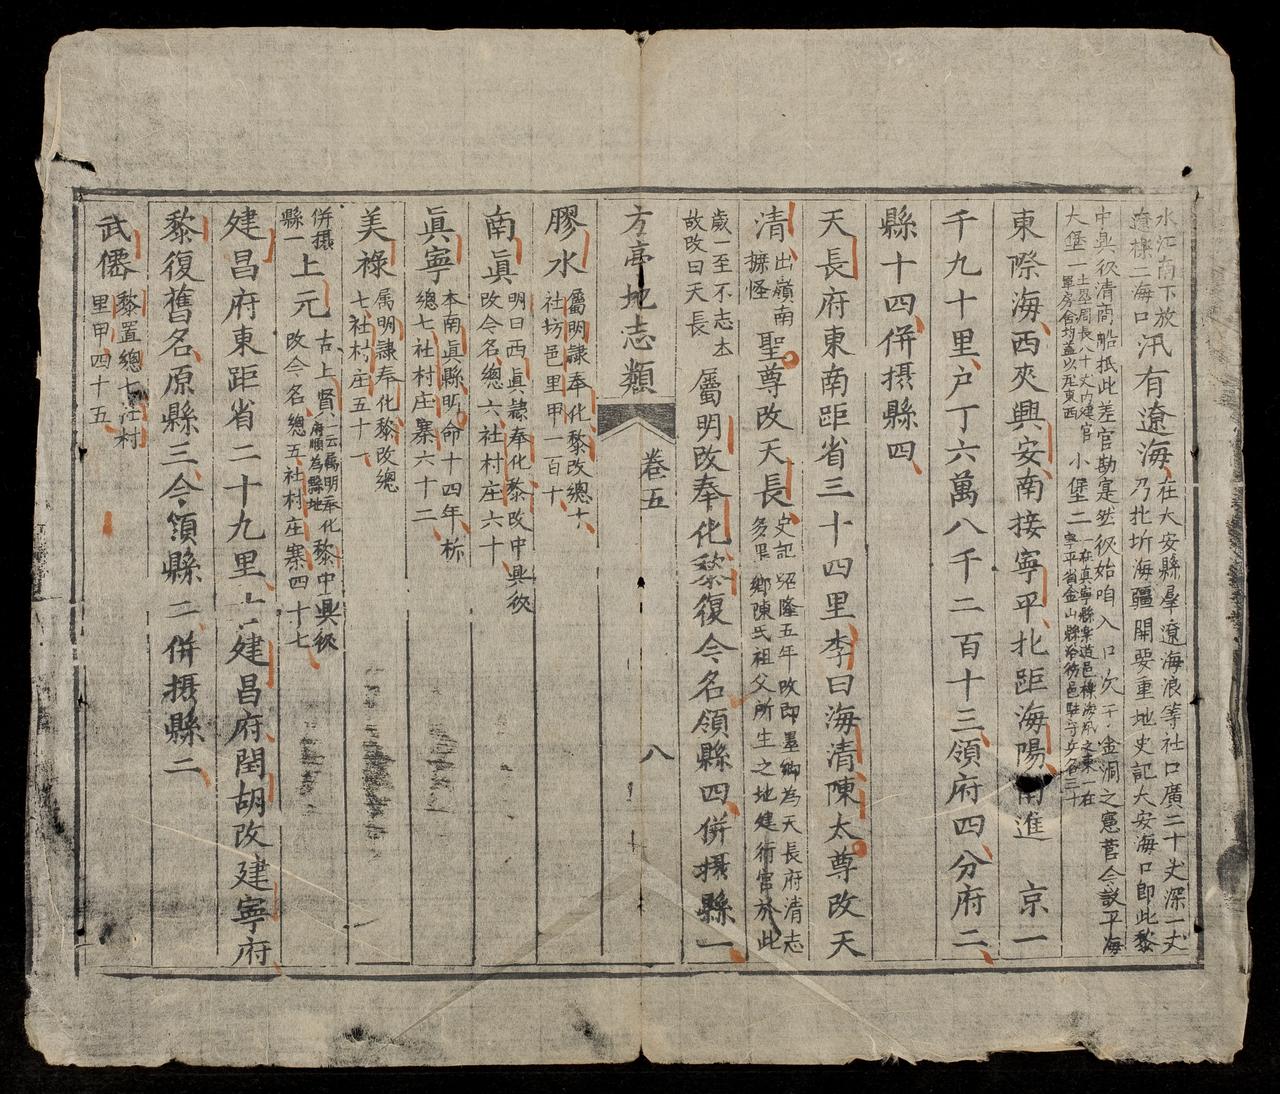 水江南下放
遼樑二海口
汛有遼海
在大安縣塵遼海浪等社口廣二十丈深一丈
乃北圻海疆開要重地史記大安海口即此黎
中興後清商船抵此差官勘寔然後始咱入口次于金洞之憲营今設平海
大堡一
土壘周長八十丈內建官
軍房舍均蓋以瓦東西
小堡二
一在真寧縣樂道邑棟海汛之東一在
寧平省金山縣
東際海西夾興安南接寧平北距海陽南進 京一
千九十里户丁六萬八千二百十三領府四分府二
縣十四併摄縣四
天長府東南距省三十四里李曰海清陳太尊改天
清
出嶺南
摭怪
聖尊改天長
史記紹隆五年改即墨鄉為天長府清志
多里鄉陳氏祖父所生之地建行宫於此
歲一至不忘本
故改曰天長
屬明改奉化黎復今名領縣四併摄縣一
方亭地志類
卷五
八
膠水
屬明隷奉化黎改總十
社坊邑里甲一百十
南真
明曰西真隷奉化黎改中興後
改今名總六社村庄六十
真寧
本南真縣明命十四年柝
總七社村庄寨六十二
美祿
属明隷奉化黎改總
七社村庄五十一
併摄
縣一
上元
古上賢
一云属明奉化
府順為縣地
黎中興後
改今名總五社村庄寨四十七
建昌府東距省二十九里古建昌府閏胡改建寧府
黎復舊名原縣三今領縣二併摄縣二
武僊
黎置總七社村
里甲四十五